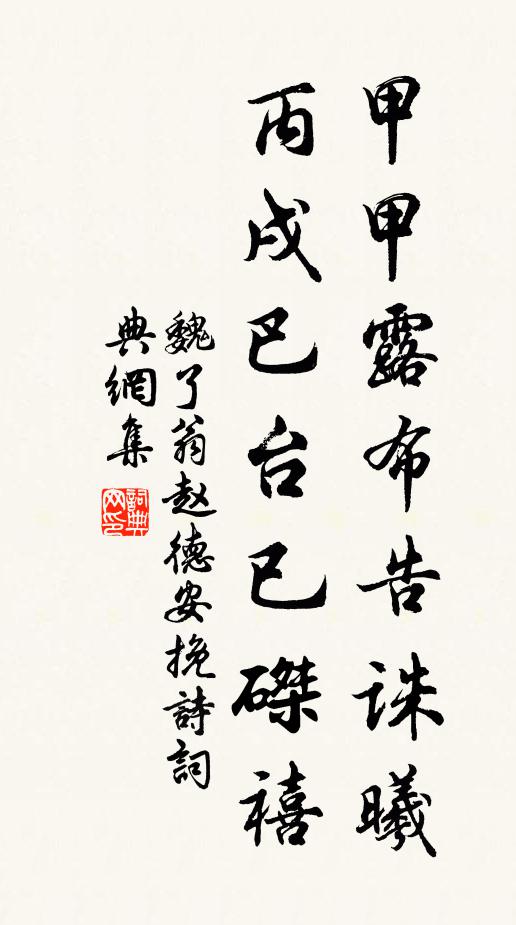 甲甲露布告誅曦
丙戌巳台已磔禧
魏了翁赵德安挽詩詞
典網集
詞典網印